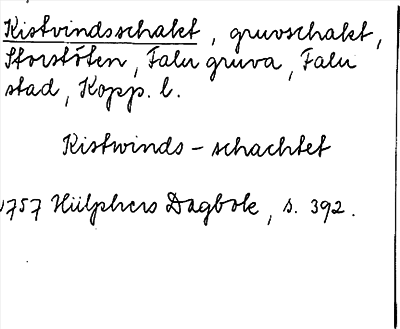 Kistvindsschakt, gruvschakt,
Storstöten, Falu gruva, Falu
stad, Kopp. l.
Kistwinds - schachtet
1757 Hülphers Dagbok, s. 392.